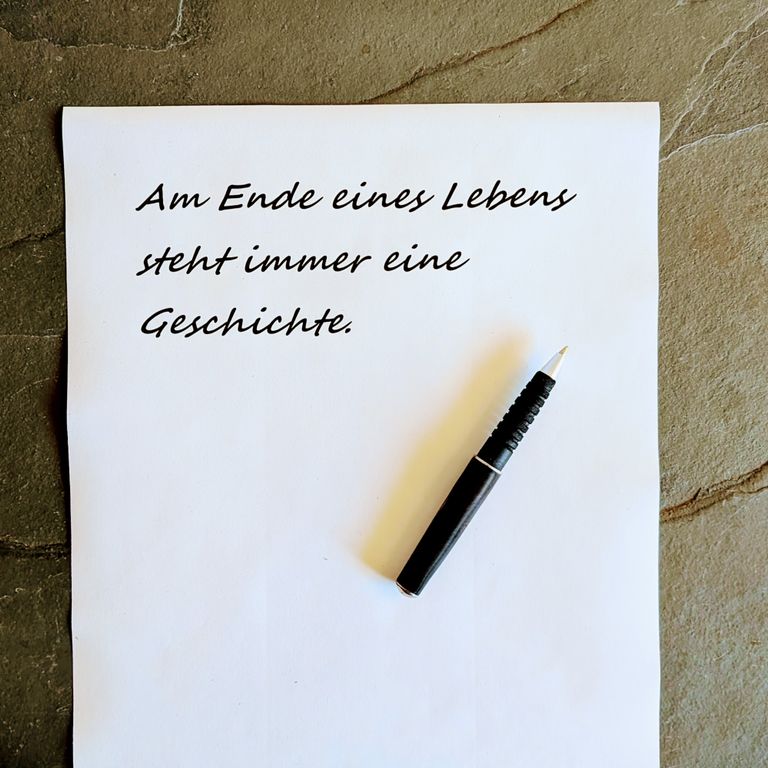 Am Ende eines Lebens
steht immer eine
Geschichte.